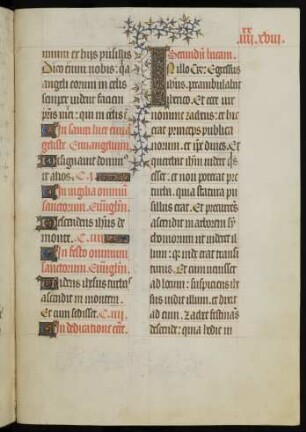 xx
iiii. xviii.
unum ex hijs pusillis
Dico enim uobis: qa
angeli eorum in celis
semper uident faciem
pris mei: qui in celis e
In sancti luce euan
geliste. Euuangelium.
Designauit domin
et alios. C. 4
In uigilia omnium
sanctorum. Euuglm.
Descendens ihus de
monte. C. iiii
In festo omnium
sanctorum. Euuglm.
Videns ihesus turbas
ascendit in montem.
Et cum sedisset. C. iiii.
In dedicatione eccle.
Secundum lucam.
In illo t'. Egressus
ihus perambulabat
iherico. Et ecce uir
nomine zacheus: et hic
erat princeps publica
norum. et ipe diues. Et
querebat ihm uidere qs
esset. et non poterat pre
turba. quia statura pu
sillus erat. Et precurrens
ascendit in arborem sy
chomorum ut uideret il
lum: qa inde erat transi
turus. Et cum uenisset
ad locum: suspiciens ihs
sus uidit illum. et dixit
ad eum. Zachee festinans
descende: quia hodie in